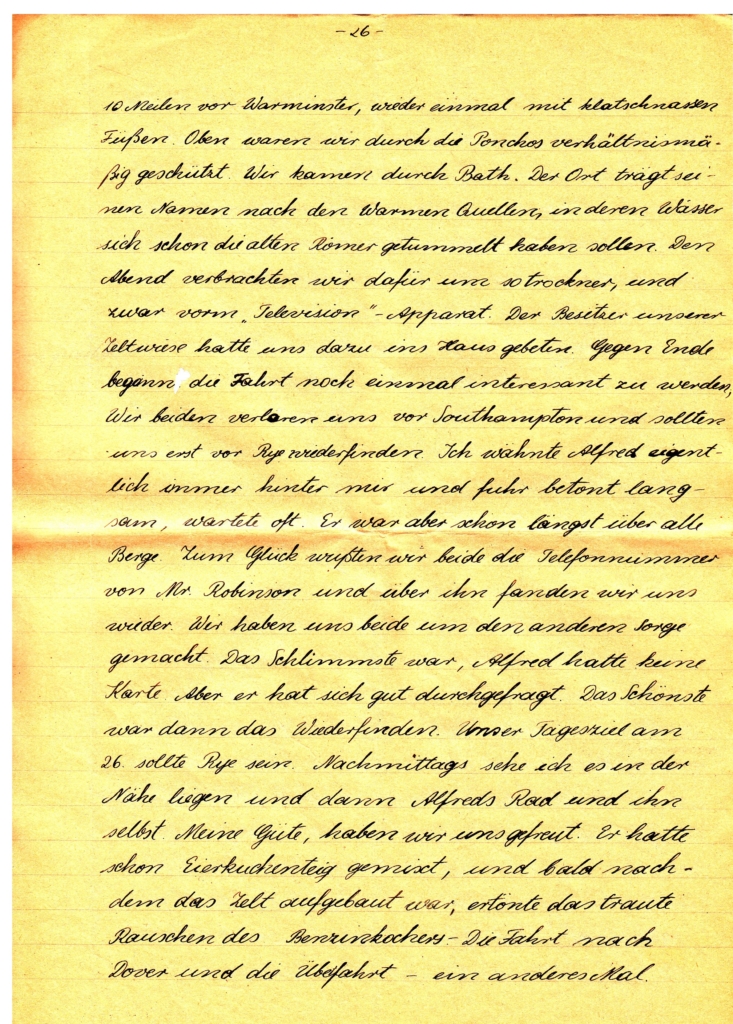 - 26 -
10 Meilen vor Warminster, wieder einmal mit klatschnassen
Füßen. Oben waren wir durch die Ponchos verhältnismä-
ßig geschützt. Wir kamen durch Bath. Der Ort trägt sei-
nen Namen nach den Warmen Quellen, in deren Wasser
sich schon die alten Römer getummelt haben sollen. Den
Abend verbrachten wir dafür um so trockner, und
zwar vorm „Television"-Apparat. Der Besitzer unserer
Zeltwiese hatte uns dazu ins Haus gebeten. Gegen Ende
begann die Fahrt noch einmal interessant zu werden,
Wir beiden verloren uns vor Southampton und sollten
uns erst vor Rye wiederfinden. Ich wähnte Alfred eigent-
lich immer hinter mir und fuhr betont lang-
sam, wartete oft. Er war aber schon längst über alle
Berge. Zum Glück wußten wir beide die Telefonnummer
von Mr. Robinson und über ihn fanden wir uns
wieder. Wir haben uns beide um den anderen Sorge
gemacht. Das Schlimmste war, Alfred hatte keine
Karte. Aber er hat sich gut durchgefragt. Das Schönste
war dann das Wiederfinden. Unser Tagesziel am
26. sollte Rye sein. Nachmittags sehe ich es in der
Nähe liegen und dann Alfreds Rad und ihn
selbst. Meine Güte, haben wir uns gefreut. Er hatte
schon Eierkuchenteig gemixt, und bald nach-
dem das Zelt aufgebaut war, ertönte das traute
Rauschen des Benzinkochers - Die Fahrt nach
Dover und die Übefahrt - ein anderes Mal.